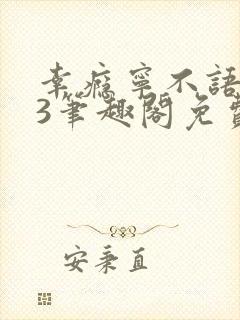 幸瘾寧不語
3筆趣閣免費
安秉直